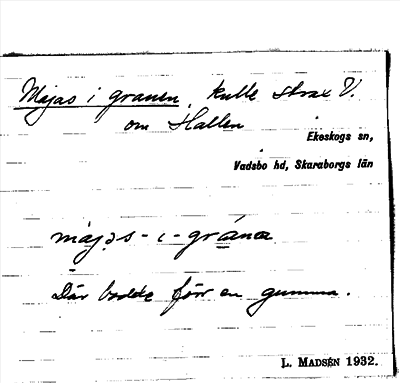 Majas i granen, kulle strax V.
om Hallen
Ekeskogs sn,
Vadsbo hd, Skaraborgs län
majəs-i-grána
Där bodde förr en gumma.
L. MADSÉN 1932.